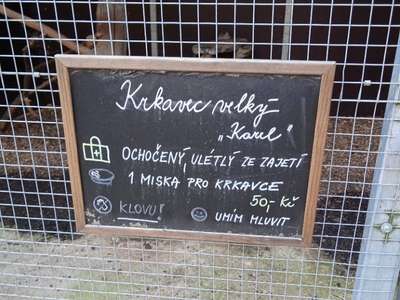 Krkavec velký
„Karel"
OCHOČENÝ, ULÉTLÝ ZE ZAJETÍ
1 MISKA PRO KRKAVCE
50,- Kč
KLOVU!
UMÍM MLUVIT